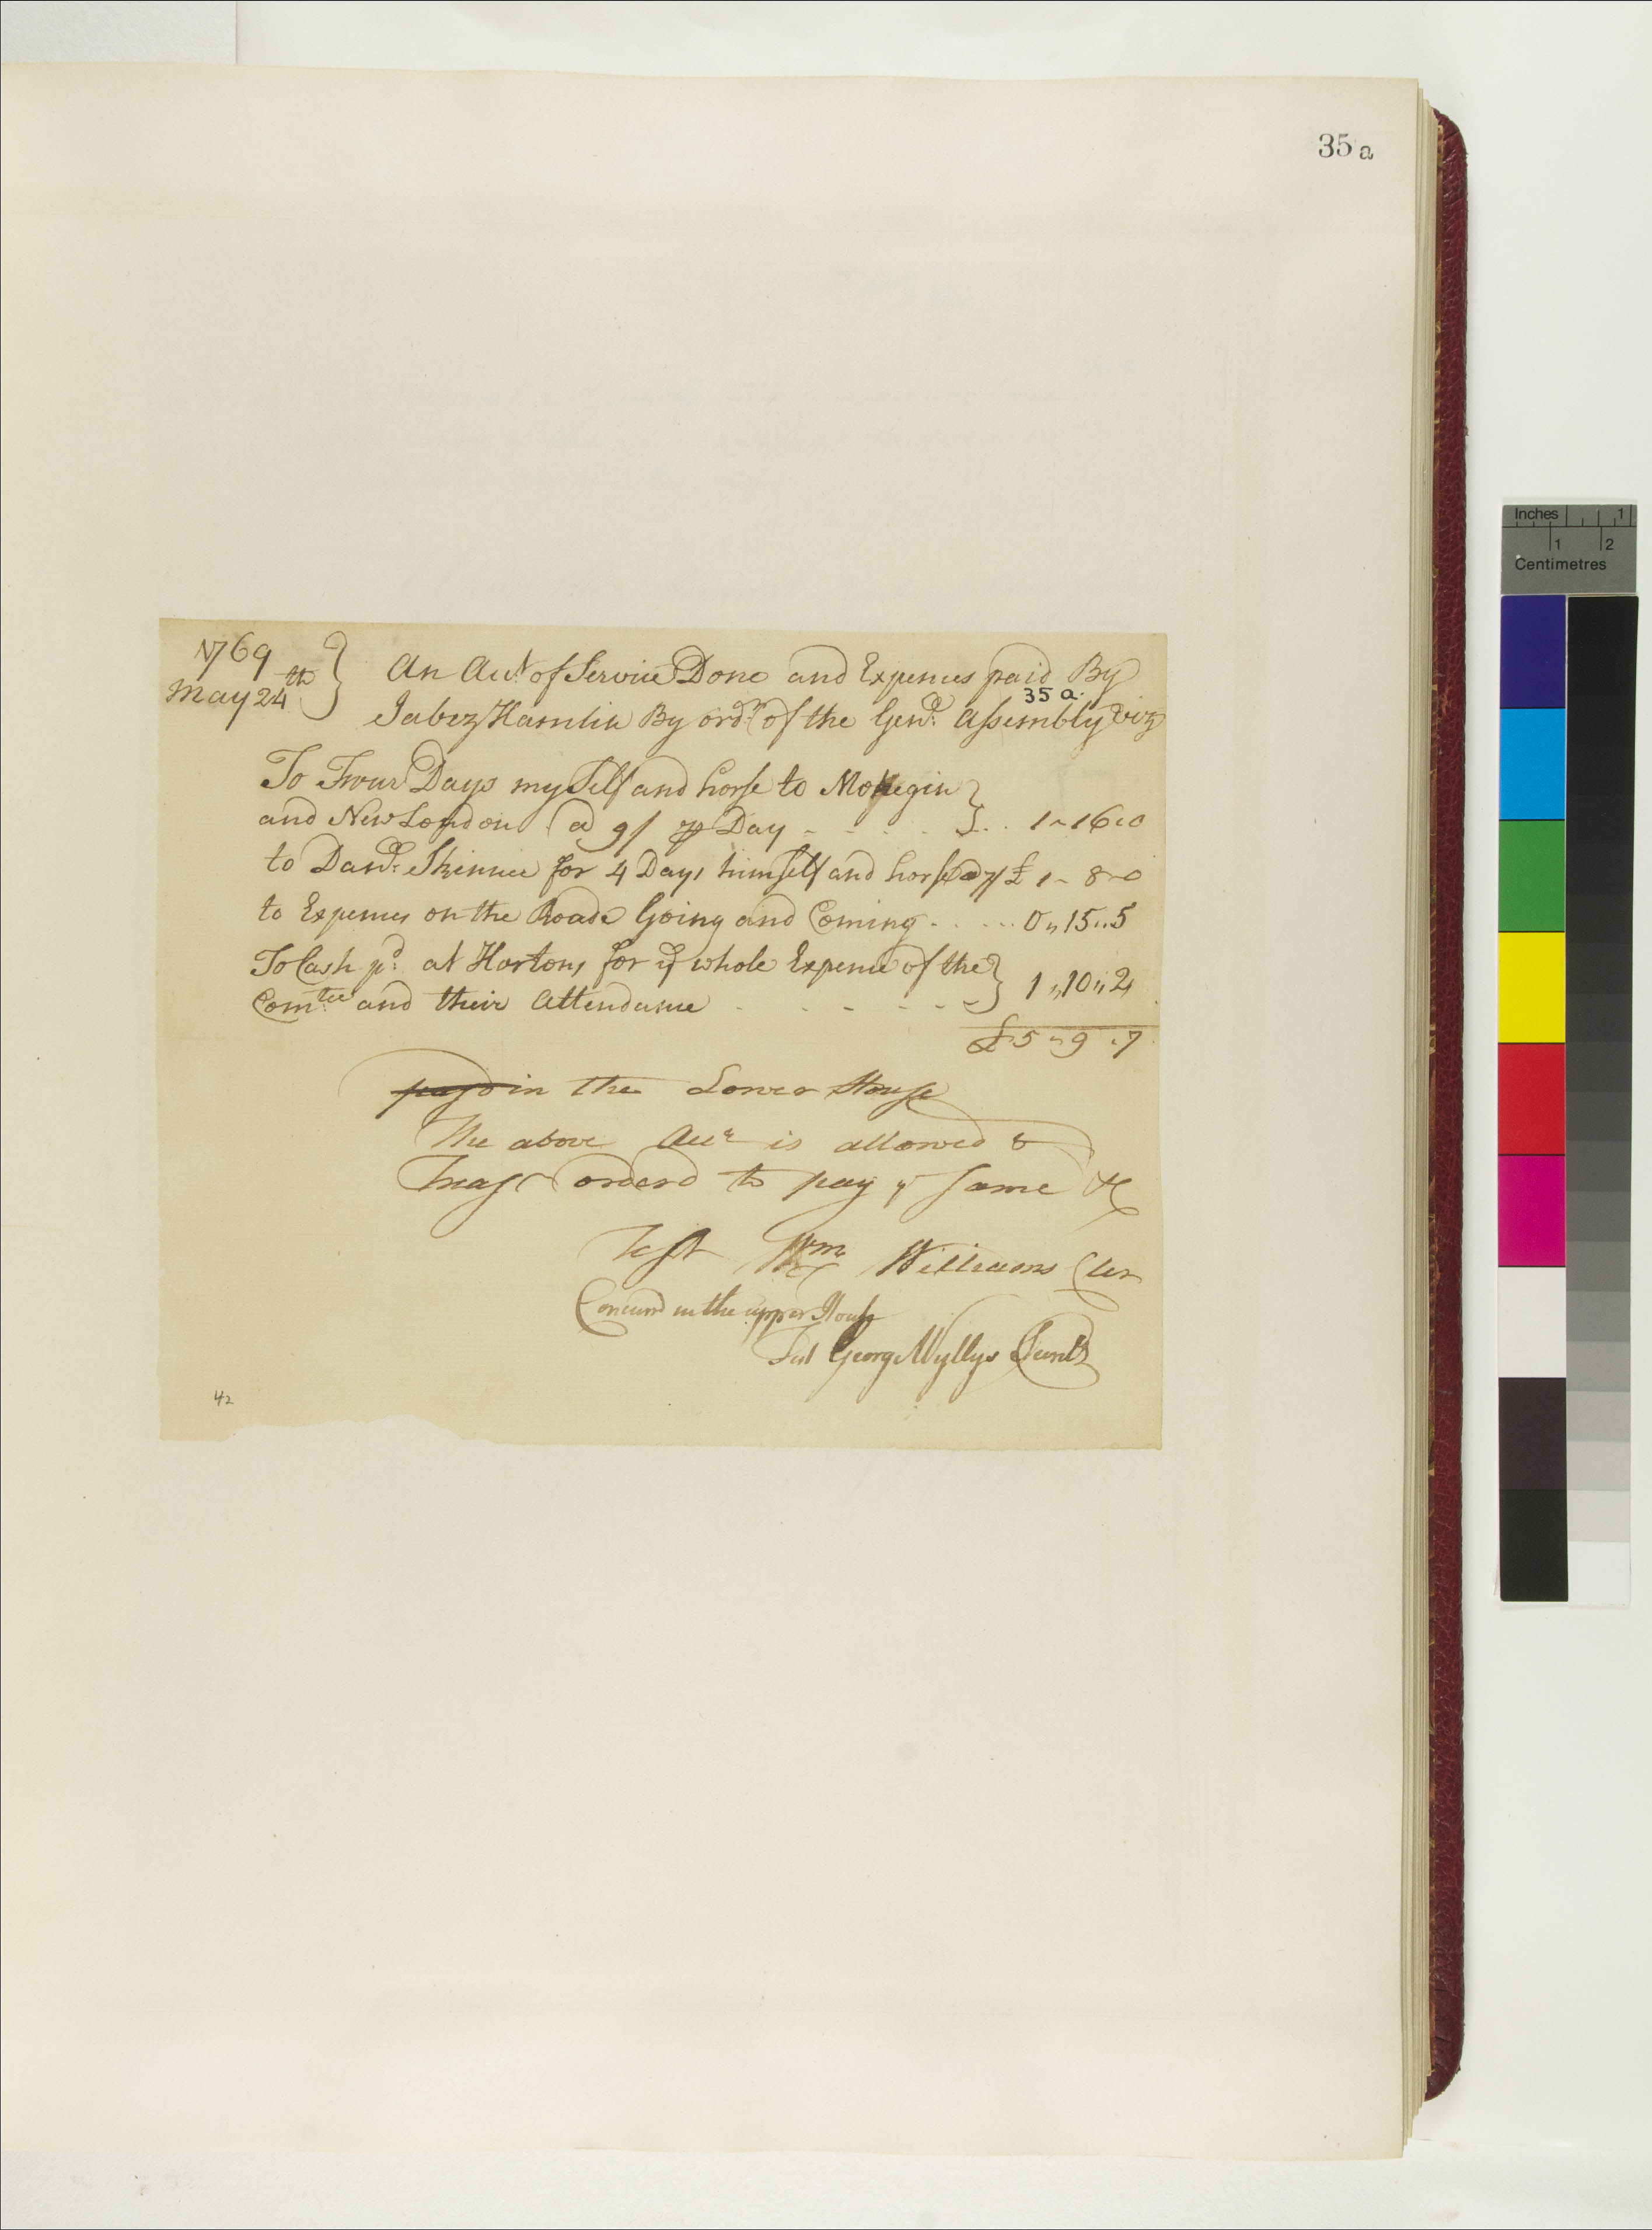 35 a
1769
May 24th } An Acct. of Service Done and Expences paid By
35 a.
Jabez Hamlin By ordr. of the Genll. Assembly viz
To Four Days my Self and horse to Mohegin
and New London @ 9/ ⅌ Day - - - - } .. 1 ~ 16 " 0
to Danll. Skinner for 4 Days himself and horse @ 7/ £ 1 ~ 8 ~ 0
to Expences on the Roade Going and Coming - . . . . . 0 " 15 .. 5
To Cash pd. at Hortons for ye whole Expence of the
Comtee and their Attendance - - - - - - } 1 " 10 " 2
£ 5 " 9 " 7
in the Lower House
The above Acct is allowed &
Treasr orderd to pay ye same &c
Test Wm Williams Cler
Concurrd in the upper House
Test George Wyllys Secretr
42
Inches 1
1 2
Centimetres